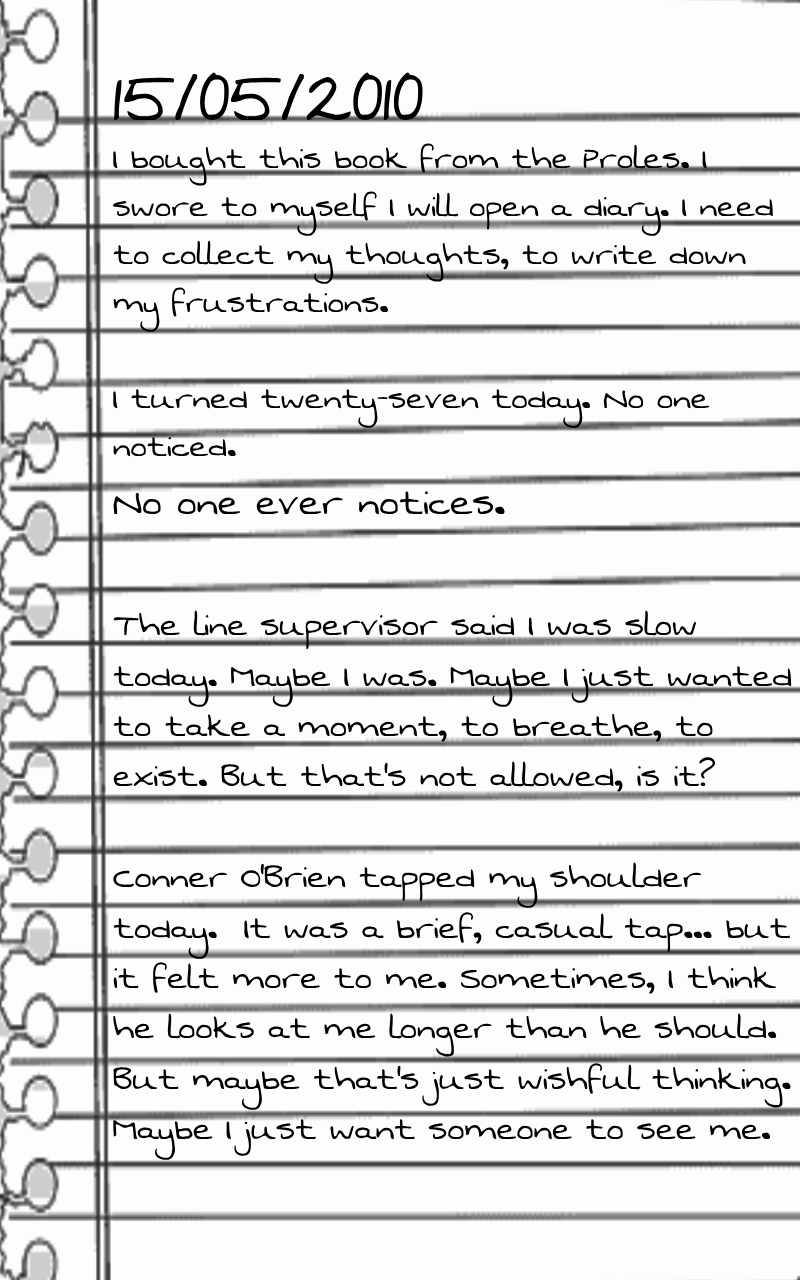 15/05/2010
I bought this book from the Proles. I
swore to myself I will open a diary. I need
to collect my thoughts, to write down
my frustrations.
I turned twenty-seven today. No one
noticed.
No one ever notices.
The line supervisor said I was slow
today. Maybe I was. Maybe I just wanted
to take a moment, to breathe, to
exist. But that's not allowed, is it?
Conner O'Brien tapped my shoulder
today.  It was a brief, casual tap... but
it felt more to me. Sometimes, I think
he looks at me longer than he should.
But maybe that's just wishful thinking.
Maybe I just want someone to see me.